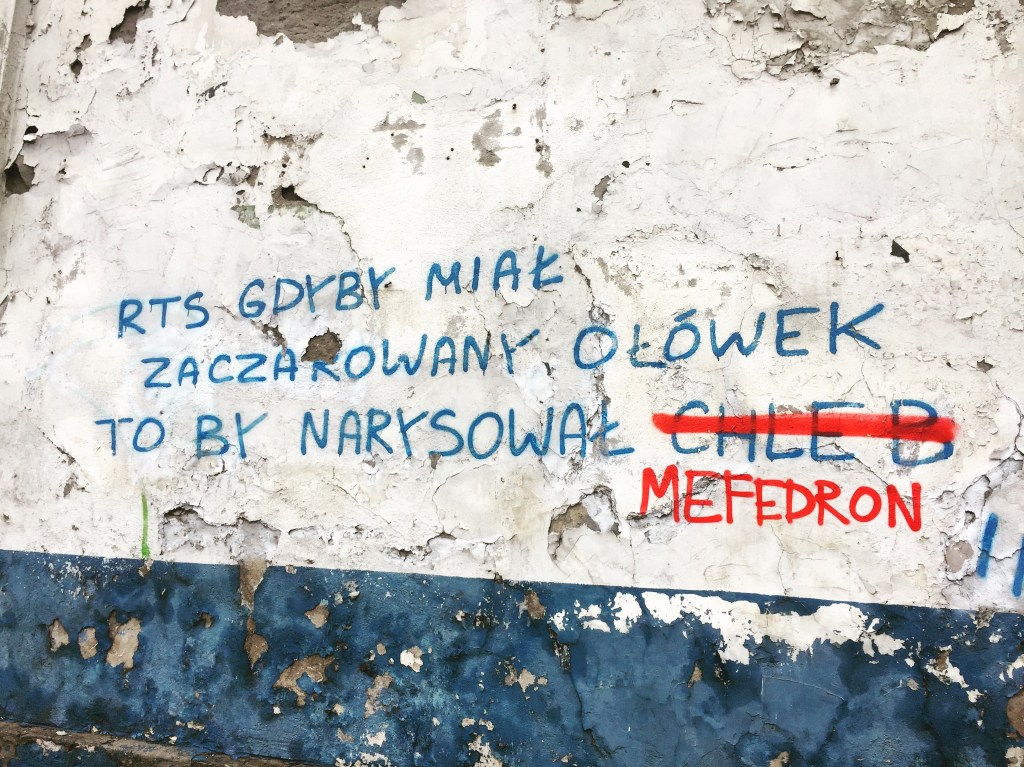 RTS GDYBY MIAŁ
ZACZAROWANY OŁÓWEK
TO BY NARYSOWAŁ CHLEB
MEFEDRON